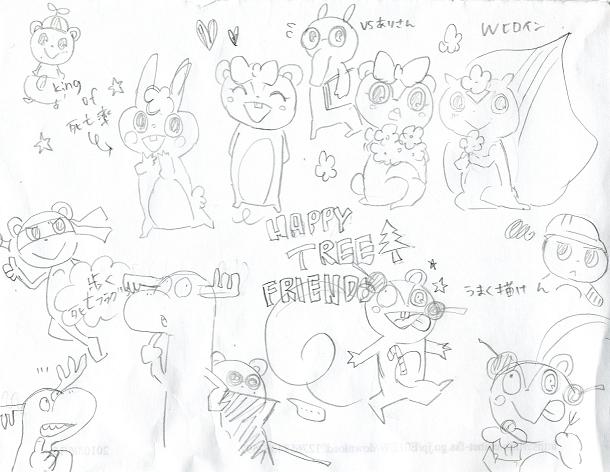 VSありさん
Wヒロイン
King
of
死亡率
HAPPY
TREE
FRIENDS
歩く
死亡フラグ
うまく描けん